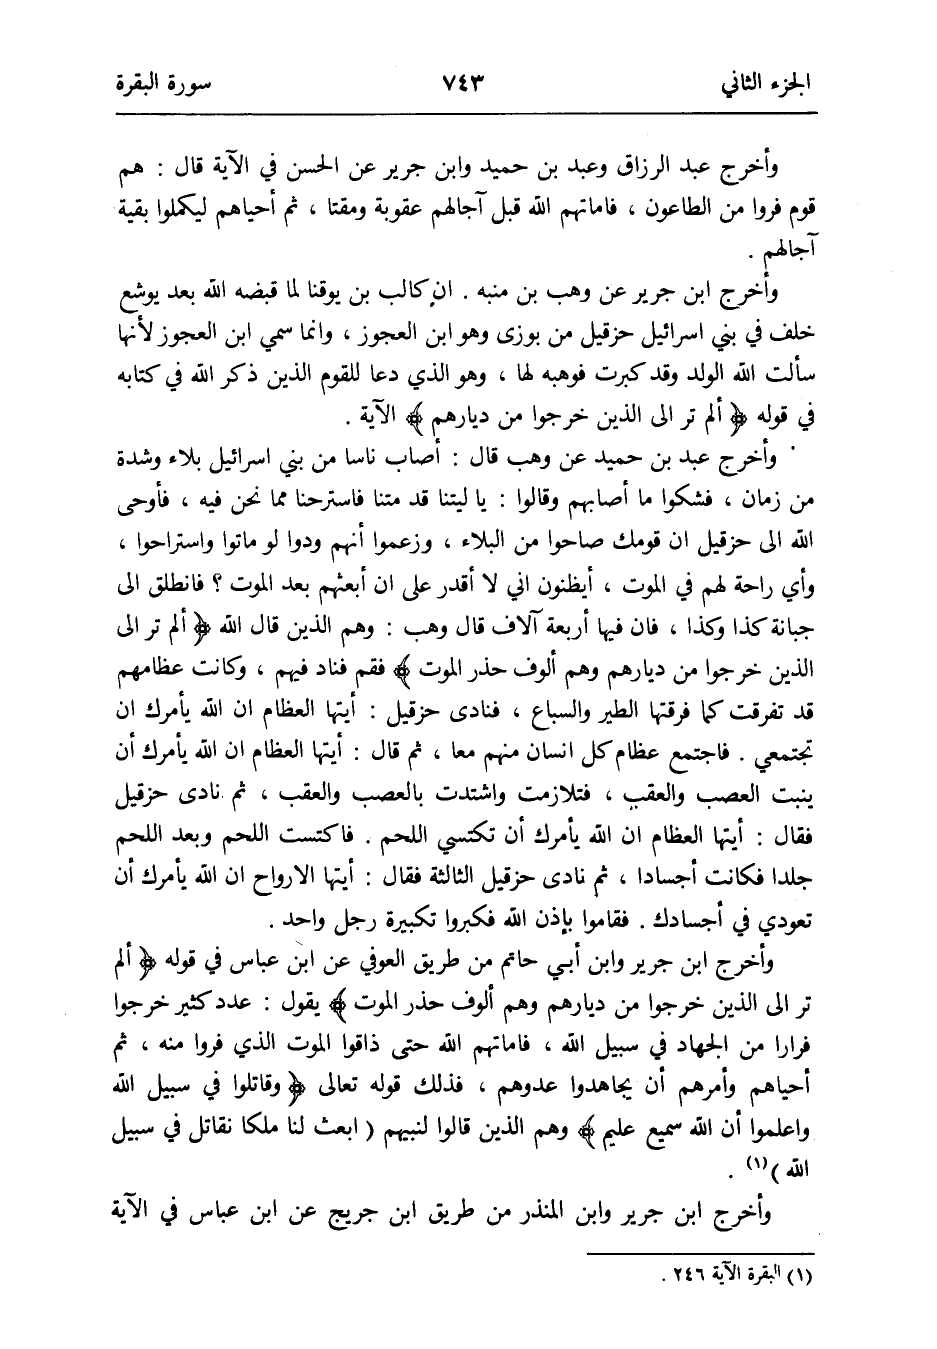 الجزء الثاني ٧٤٣ سورة البقرة
وأخرج عبد الرزاق وعبد بن حميد وابن جرير عن الحسن في الآية قال : هم
قوم فروا من الطاعون ، فاماتهم الله قبل آجالهم عقوبة ومقتا ، ثم أحياهم ليكملوا بقية
آجالهم .
وأخرج ابن جرير عن وهب بن منبه . ان كالب بن يوقنا لما قبضه الله بعد يوشع
خلف في بني اسرائيل حزقيل من بوزى وهو ابن العجوز ، وانما سمي ابن العجوز لأنها
سألت الله الولد وقد كبرت فوهبه لها ، وهو الذي دعا للقوم الذين ذكر الله في كتابه
في قوله ﴿ ألم تر الى الذين خرجوا من ديارهم ﴾ الآية .
وأخرج عبد بن حميد عن وهب قال : أصاب ناسا من بني اسرائيل بلاء وشدة
من زمان ، فشكوا ما أصابهم وقالوا : يا ليتنا قد متنا فاسترحنا مما نحن فيه ، فأوحى
الله الى حزقيل ان قومك صاحوا من البلاء ، وزعموا أنهم ودوا لو ماتوا واستراحوا ،
وأي راحة لهم في الموت ، أيظنون اني لا أقدر على ان أبعثهم بعد الموت ؟ فانطلق الى
جبانة كذا وكذا ، فان فيها أربعة آلاف قال وهب : وهم الذين قال الله ﴿ ألم تر الى
الذين خرجوا من ديارهم وهم ألوف حذر الموت ﴾ فقم فناد فيهم ، وكانت عظامهم
قد تفرقت كما فرقتها الطير والسباع ، فنادى حزقيل : أيتها العظام ان الله يأمرك ان
تجتمعي . فاجتمع عظام كل انسان منهم معا ، ثم قال : أيتها العظام ان الله يأمرك أن
ينبت العصب والعقب ، فتلازمت واشتدت بالعصب والعقب ، ثم نادى حزقيل
فقال : أيتها العظام ان الله يأمرك أن تكتسي اللحم . فاكتست اللحم وبعد اللحم
جلدا فكانت أجسادا ، ثم نادى حزقيل الثالثة فقال : أيتها الارواح ان الله يأمرك أن
تعودي في أجسادك . فقاموا بإذن الله فكبروا تكبيرة رجل واحد .
وأخرج ابن جرير وابن أبي حاتم من طريق العوفي عن ابن عباس في قوله ﴿ ألم
تر الى الذين خرجوا من ديارهم وهم ألوف حذر الموت ﴾ يقول : عدد كثير خرجوا
فرارا من الجهاد في سبيل الله ، فاماتهم الله حتى ذاقوا الموت الذي فروا منه ، ثم
أحياهم وأمرهم أن يجاهدوا عدوهم ، فذلك قوله تعالى ﴿ وقاتلوا في سبيل الله
واعلموا أن الله سميع عليم ﴾ وهم الذين قالوا لنبيهم ( ابعث لنا ملكا نقاتل في سبيل
الله )(١) .
وأخرج ابن جرير وابن المنذر من طريق ابن جريج عن ابن عباس في الآية
(١) البقرة الآية ٢٤٦ .